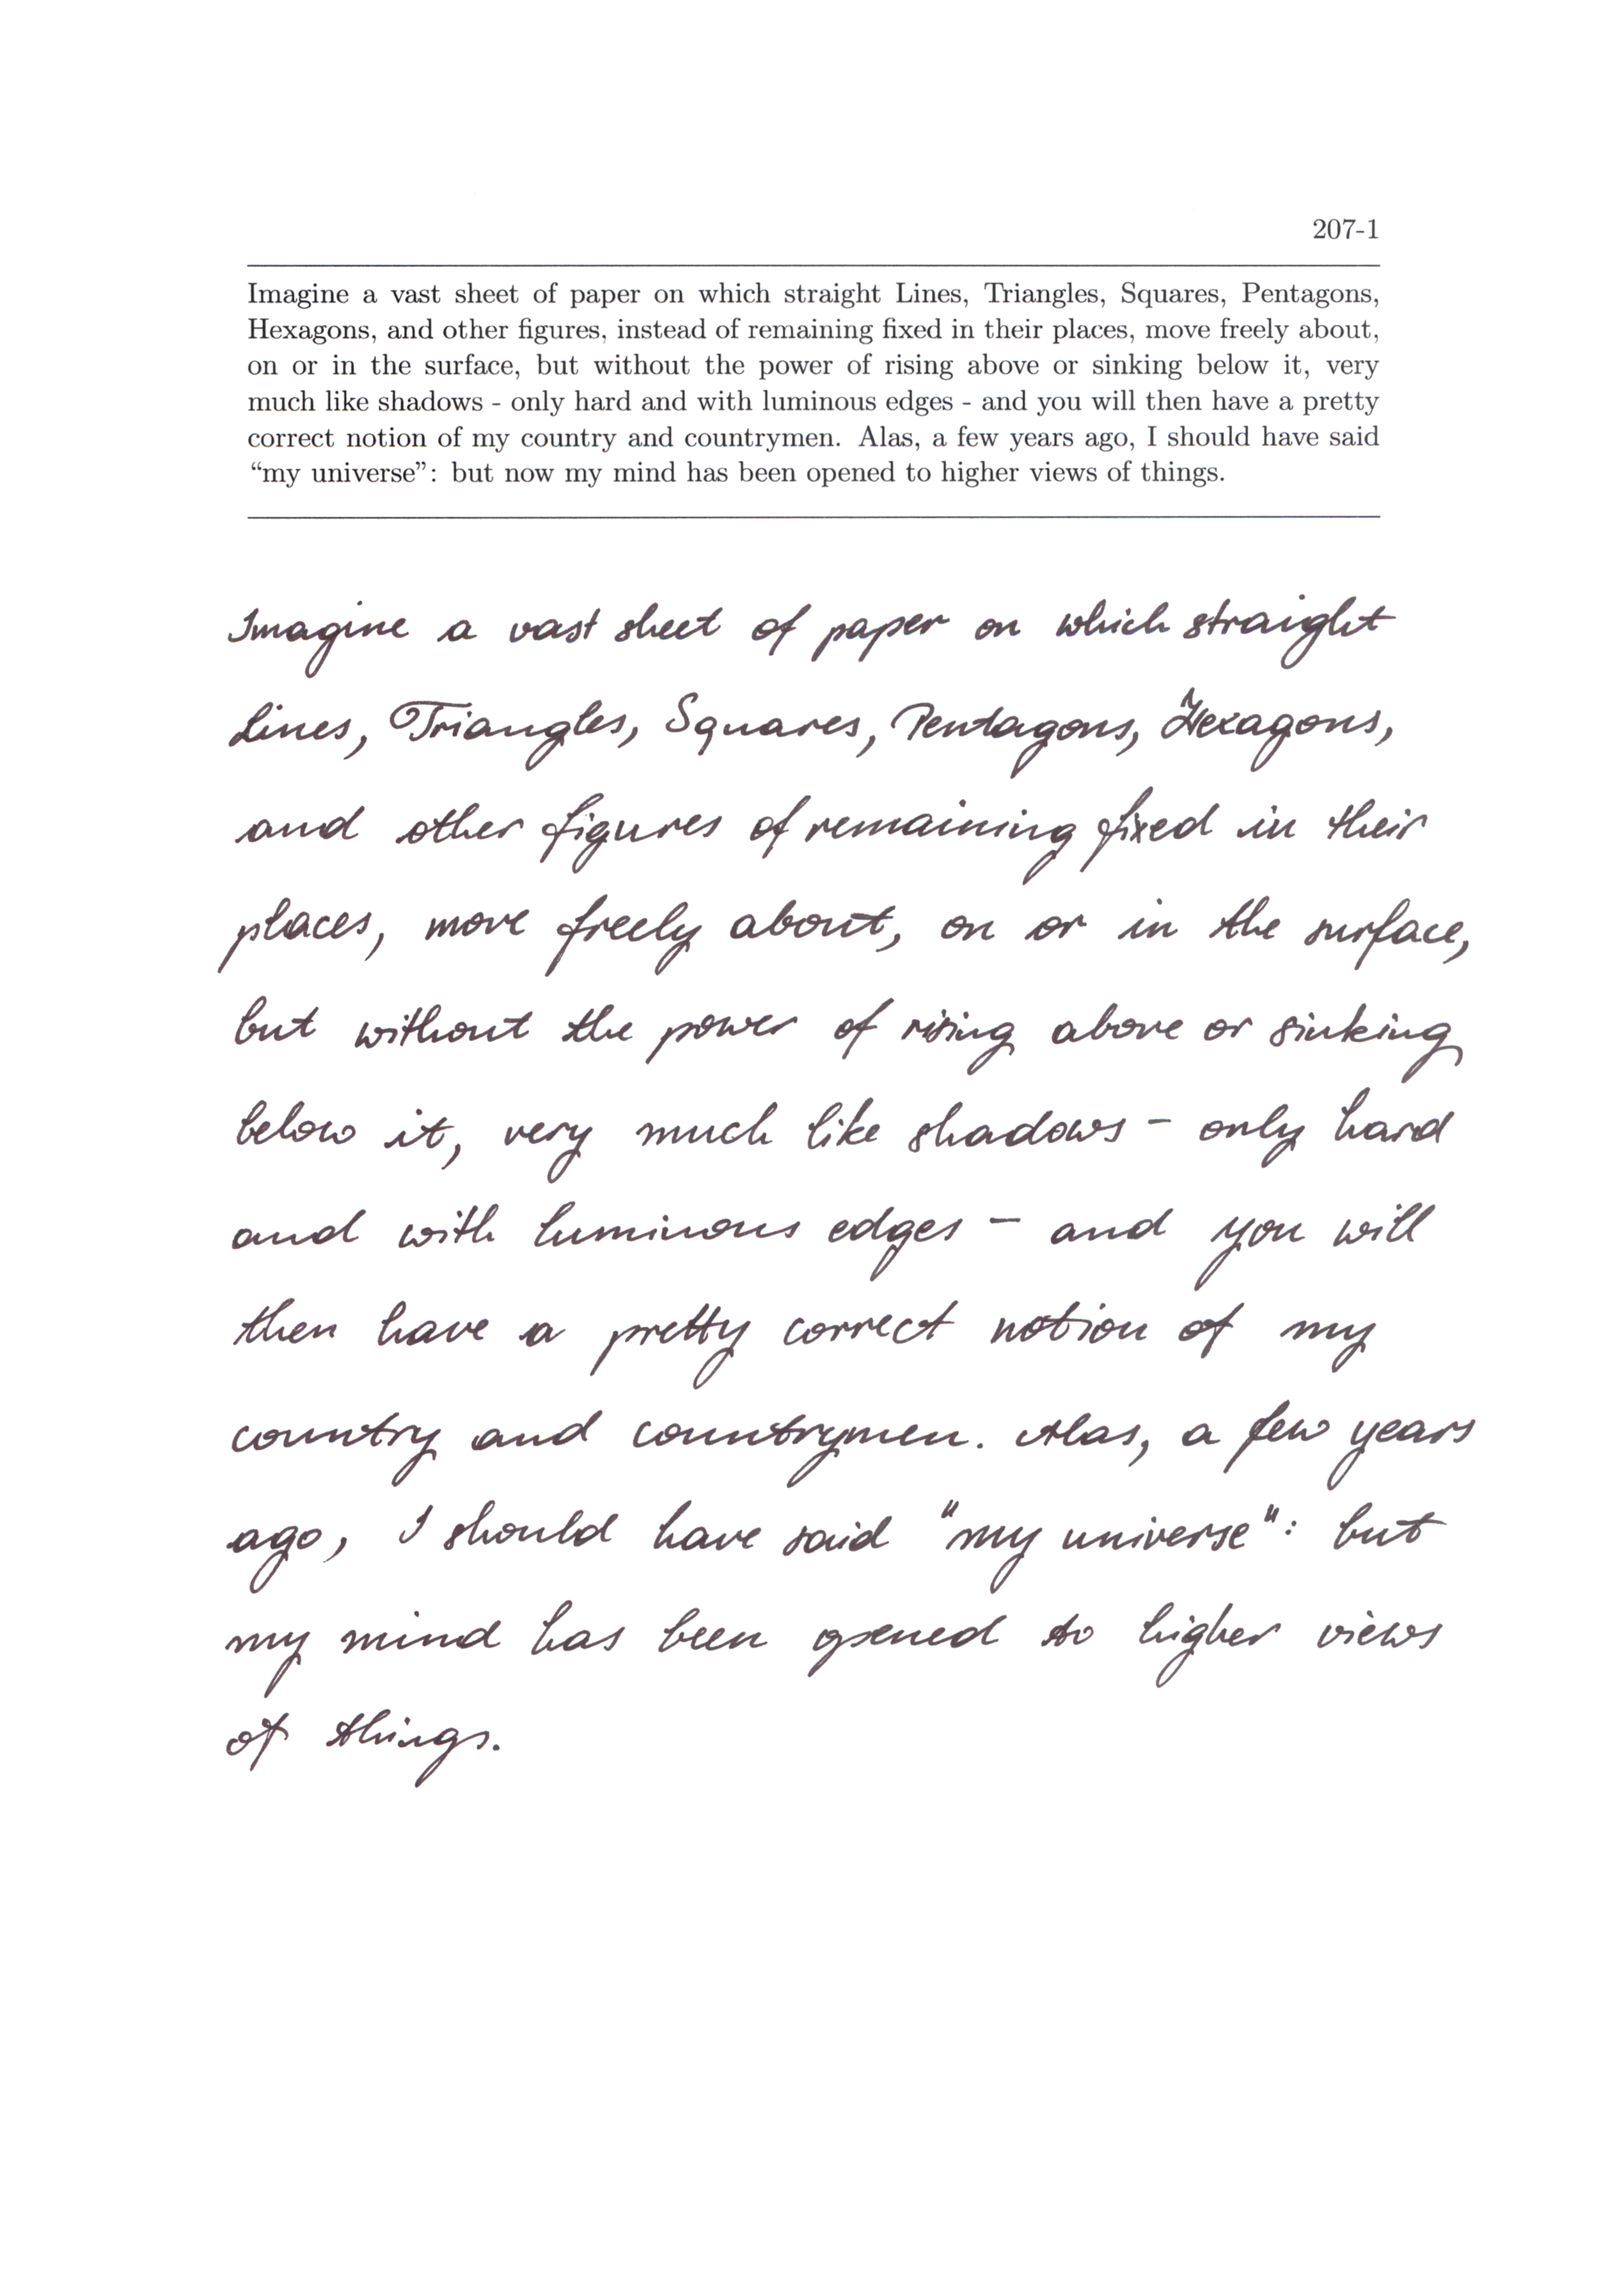 207-1
Imagine a vast sheet of paper on which straight Lines, Triangles, Squares, Pentagons,
Hexagons, and other figures, instead of remaining fixed in their places, move freely about,
on or in the surface, but without the power of rising above or sinking below it, very
much like shadows - only hard and with luminous edges - and you will then have a pretty
correct notion of my country and countrymen. Alas, a few years ago, I should have said
“my universe”: but now my mind has been opened to higher views of things.
Imagine a vast sheet of paper on which straight
Lines, Triangles, Squares, Pentagons, Hexagons,
and other figures of remaining fixed in their
places, move freely about, on or in the surface,
but without the power of rising above or sinking
below it, very much like shadows - only hard
and with luminous edges - and you will
then have a pretty correct notion of my
country and countrymen. Alas, a few years
ago, I should have said "my universe": but
my mind has been opened to higher views
of things.